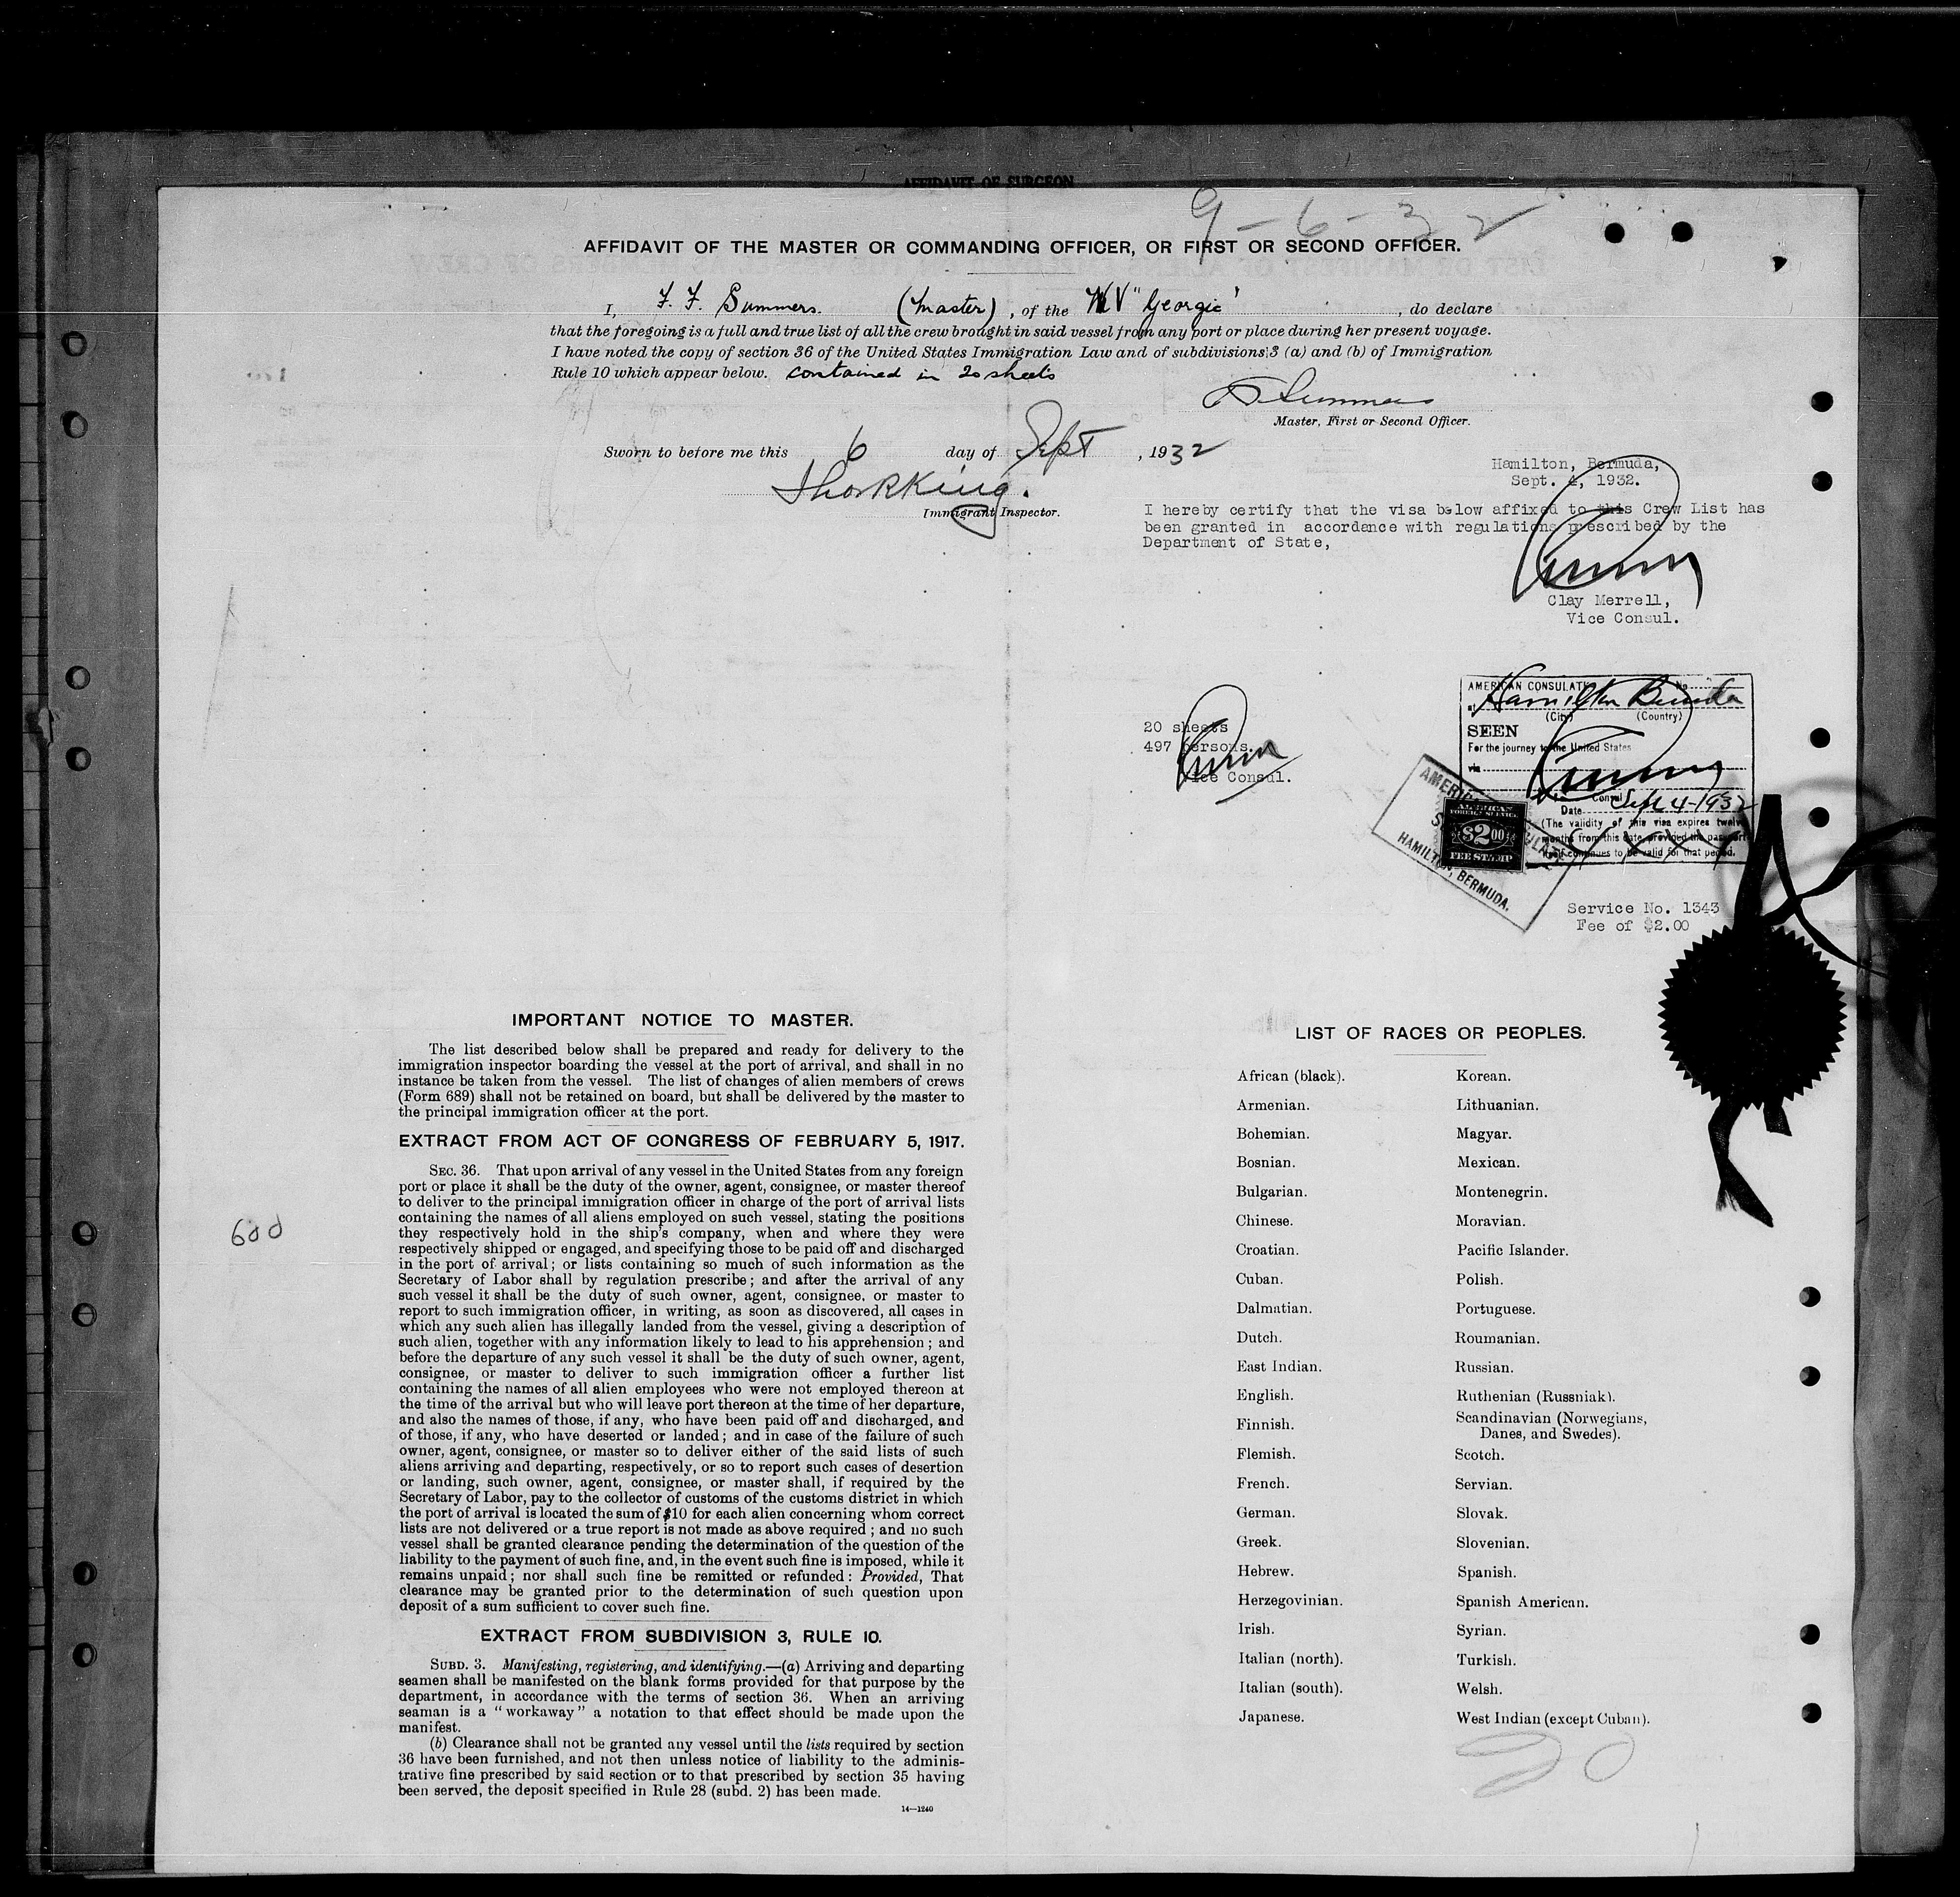 AFFIDAVIT OF SURGEON
9-6-32
AFFIDAVIT OF THE MASTER OR COMMANDING OFFICER, OR FIRST OR SECOND OFFICER.
I, F. F. Summers. (Master), of the MV "Georgic", do declare
that the foregoing is a full and true list of all the crew brought in said vessel from any port or place during her present voyage.
I have noted the copy of section 36 of the United States Immigration Law and of subdivisions 3 (a) and (b) of Immigration
Rule 10 which appear below. contained in 20 sheets
Summers
Master, First or Second Officer.
Sworn to before me this 6 day of Sept, 1932
Immigrant Inspector.
Hamilton, Bermuda,
Sept. 4, 1932.
I hereby certify that the visa below affixed to this Crew List has
been granted in accordance with regulations prescribed by the
Department of State,
Clay Merrell,
Vice Consul.
20 sheets
497 persons.
Vice Consul.
AMERICAN CONSULATE No.
at Hamilton Bermuda
(City) (Country)
SEEN
For the journey to the United States
via
Consul
Date Sept 4-1932
(The validity of this visa expires twelve
months from this date, provided the passport
itself continues to be valid for that period.
AMERICAN
HAMILTON, BERMUDA.
AMERICAN
FOREIGN SERVICE
$2.00
FEE STAMP
Service No. 1343
Fee of $2.00
IMPORTANT NOTICE TO MASTER.
The list described below shall be prepared and ready for delivery to the
immigration inspector boarding the vessel at the port of arrival, and shall in no
instance be taken from the vessel. The list of changes of alien members of crews
(Form 689) shall not be retained on board, but shall be delivered by the master to
the principal immigration officer at the port.
EXTRACT FROM ACT OF CONGRESS OF FEBRUARY 5, 1917.
SEC. 36. That upon arrival of any vessel in the United States from any foreign
port or place it shall be the duty of the owner, agent, consignee, or master thereof
to deliver to the principal immigration officer in charge of the port of arrival lists
containing the names of all aliens employed on such vessel, stating the positions
they respectively hold in the ship's company, when and where they were
respectively shipped or engaged, and specifying those to be paid off and discharged
in the port of arrival; or lists containing so much of such information as the
Secretary of Labor shall by regulation prescribe; and after the arrival of any
such vessel it shall be the duty of such owner, agent, consignee, or master to
report to such immigration officer, in writing, as soon as discovered, all cases in
which any such alien has illegally landed from the vessel, giving a description of
such alien, together with any information likely to lead to his apprehension; and
before the departure of any such vessel it shall be the duty of such owner, agent,
consignee, or master to deliver to such immigration officer a further list
containing the names of all alien employees who were not employed thereon at
the time of the arrival but who will leave port thereon at the time of her departure,
and also the names of those, if any, who have been paid off and discharged, and
of those, if any, who have deserted or landed; and in case of the failure of such
owner, agent, consignee, or master so to deliver either of the said lists of such
aliens arriving and departing, respectively, or so to report such cases of desertion
or landing, such owner, agent, consignee, or master shall, if required by the
Secretary of Labor, pay to the collector of customs of the customs district in which
the port of arrival is located the sum of $10 for each alien concerning whom correct
lists are not delivered or a true report is not made as above required; and no such
vessel shall be granted clearance pending the determination of the question of the
liability to the payment of such fine, and, in the event such fine is imposed, while it
remains unpaid; nor shall such fine be remitted or refunded: Provided, That
clearance may be granted prior to the determination of such question upon
deposit of a sum sufficient to cover such fine.
EXTRACT FROM SUBDIVISION 3, RULE 10.
SUBD. 3. Manifesting, registering, and identifying.—(a) Arriving and departing
seamen shall be manifested on the blank forms provided for that purpose by the
department, in accordance with the terms of section 36. When an arriving
seaman is a "workaway" a notation to that effect should be made upon the
manifest.
(b) Clearance shall not be granted any vessel until the lists required by section
36 have been furnished, and not then unless notice of liability to the adminis-
trative fine prescribed by said section or to that prescribed by section 35 having
been served, the deposit specified in Rule 28 (subd. 2) has been made.
14—1240
600
LIST OF RACES OR PEOPLES.
African (black).
Armenian.
Bohemian.
Bosnian.
Bulgarian.
Chinese.
Croatian.
Cuban.
Dalmatian.
Dutch.
East Indian.
English.
Finnish.
Flemish.
French.
German.
Greek.
Hebrew.
Herzegovinian.
Irish.
Italian (north).
Italian (south).
Japanese.
Korean.
Lithuanian.
Magyar.
Mexican.
Montenegrin.
Moravian.
Pacific Islander.
Polish.
Portuguese.
Roumanian.
Russian.
Ruthenian (Russniak).
Scandinavian (Norwegians,
Danes, and Swedes).
Scotch.
Servian.
Slovak.
Slovenian.
Spanish.
Spanish American.
Syrian.
Turkish.
Welsh.
West Indian (except Cuban).
20